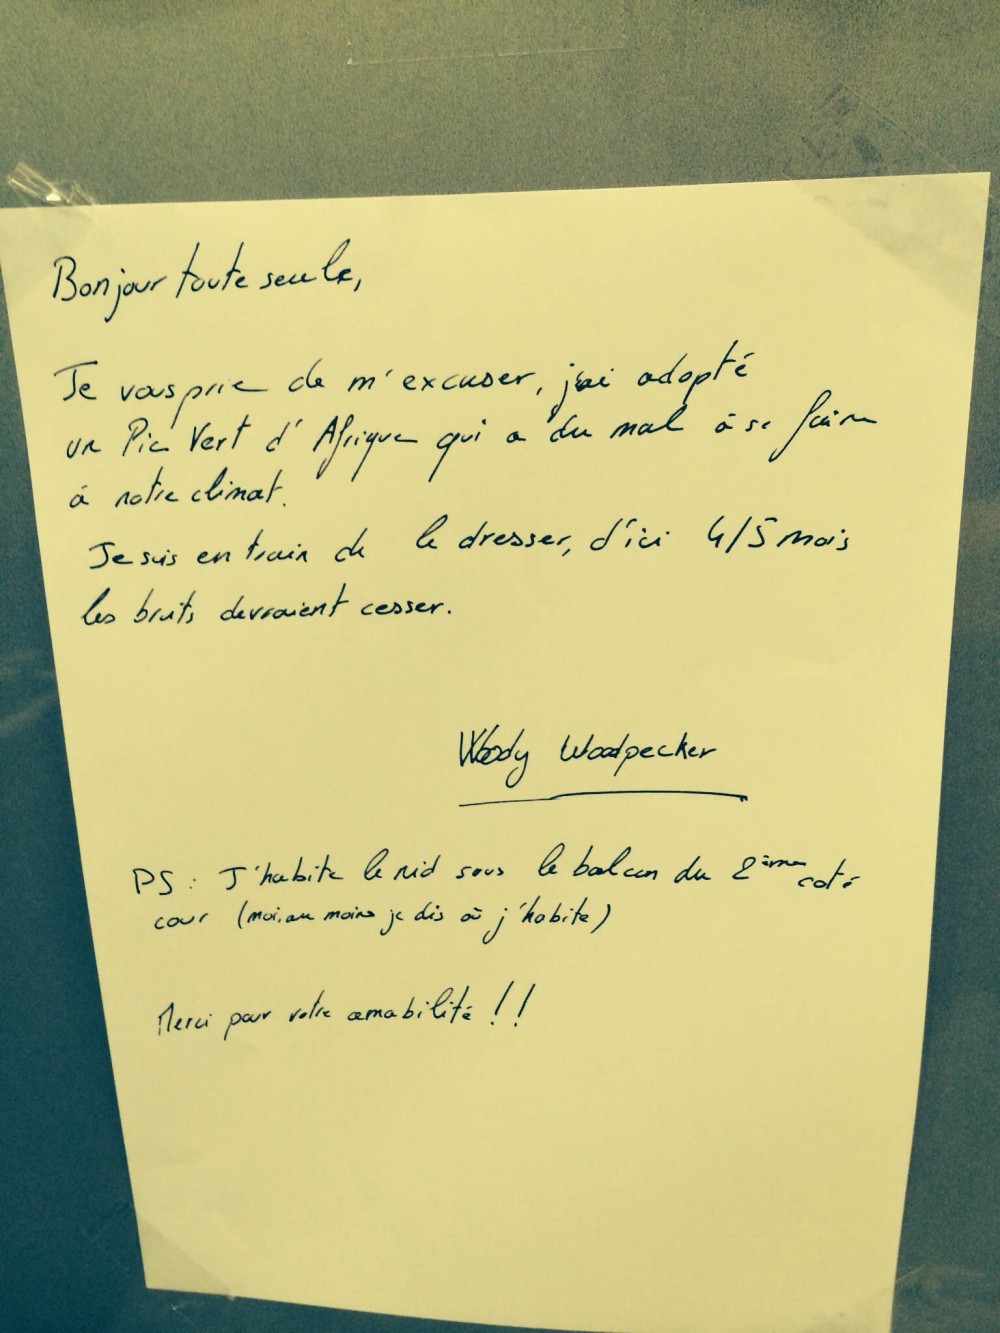 Bonjour toute seule,
Je vous prie de m'excuser, j'ai adopté
un Pic Vert d'Afrique qui a du mal à se faire
à notre climat.
Je suis en train de le dresser, d'ici 4/5 mois
les bruits devraient cesser.
Woody Woodpecker
PS : J'habite le nid sous le balcon du 2ème coté
cour (moi, au moins je dis où j'habite)
Merci pour votre amabilité !!